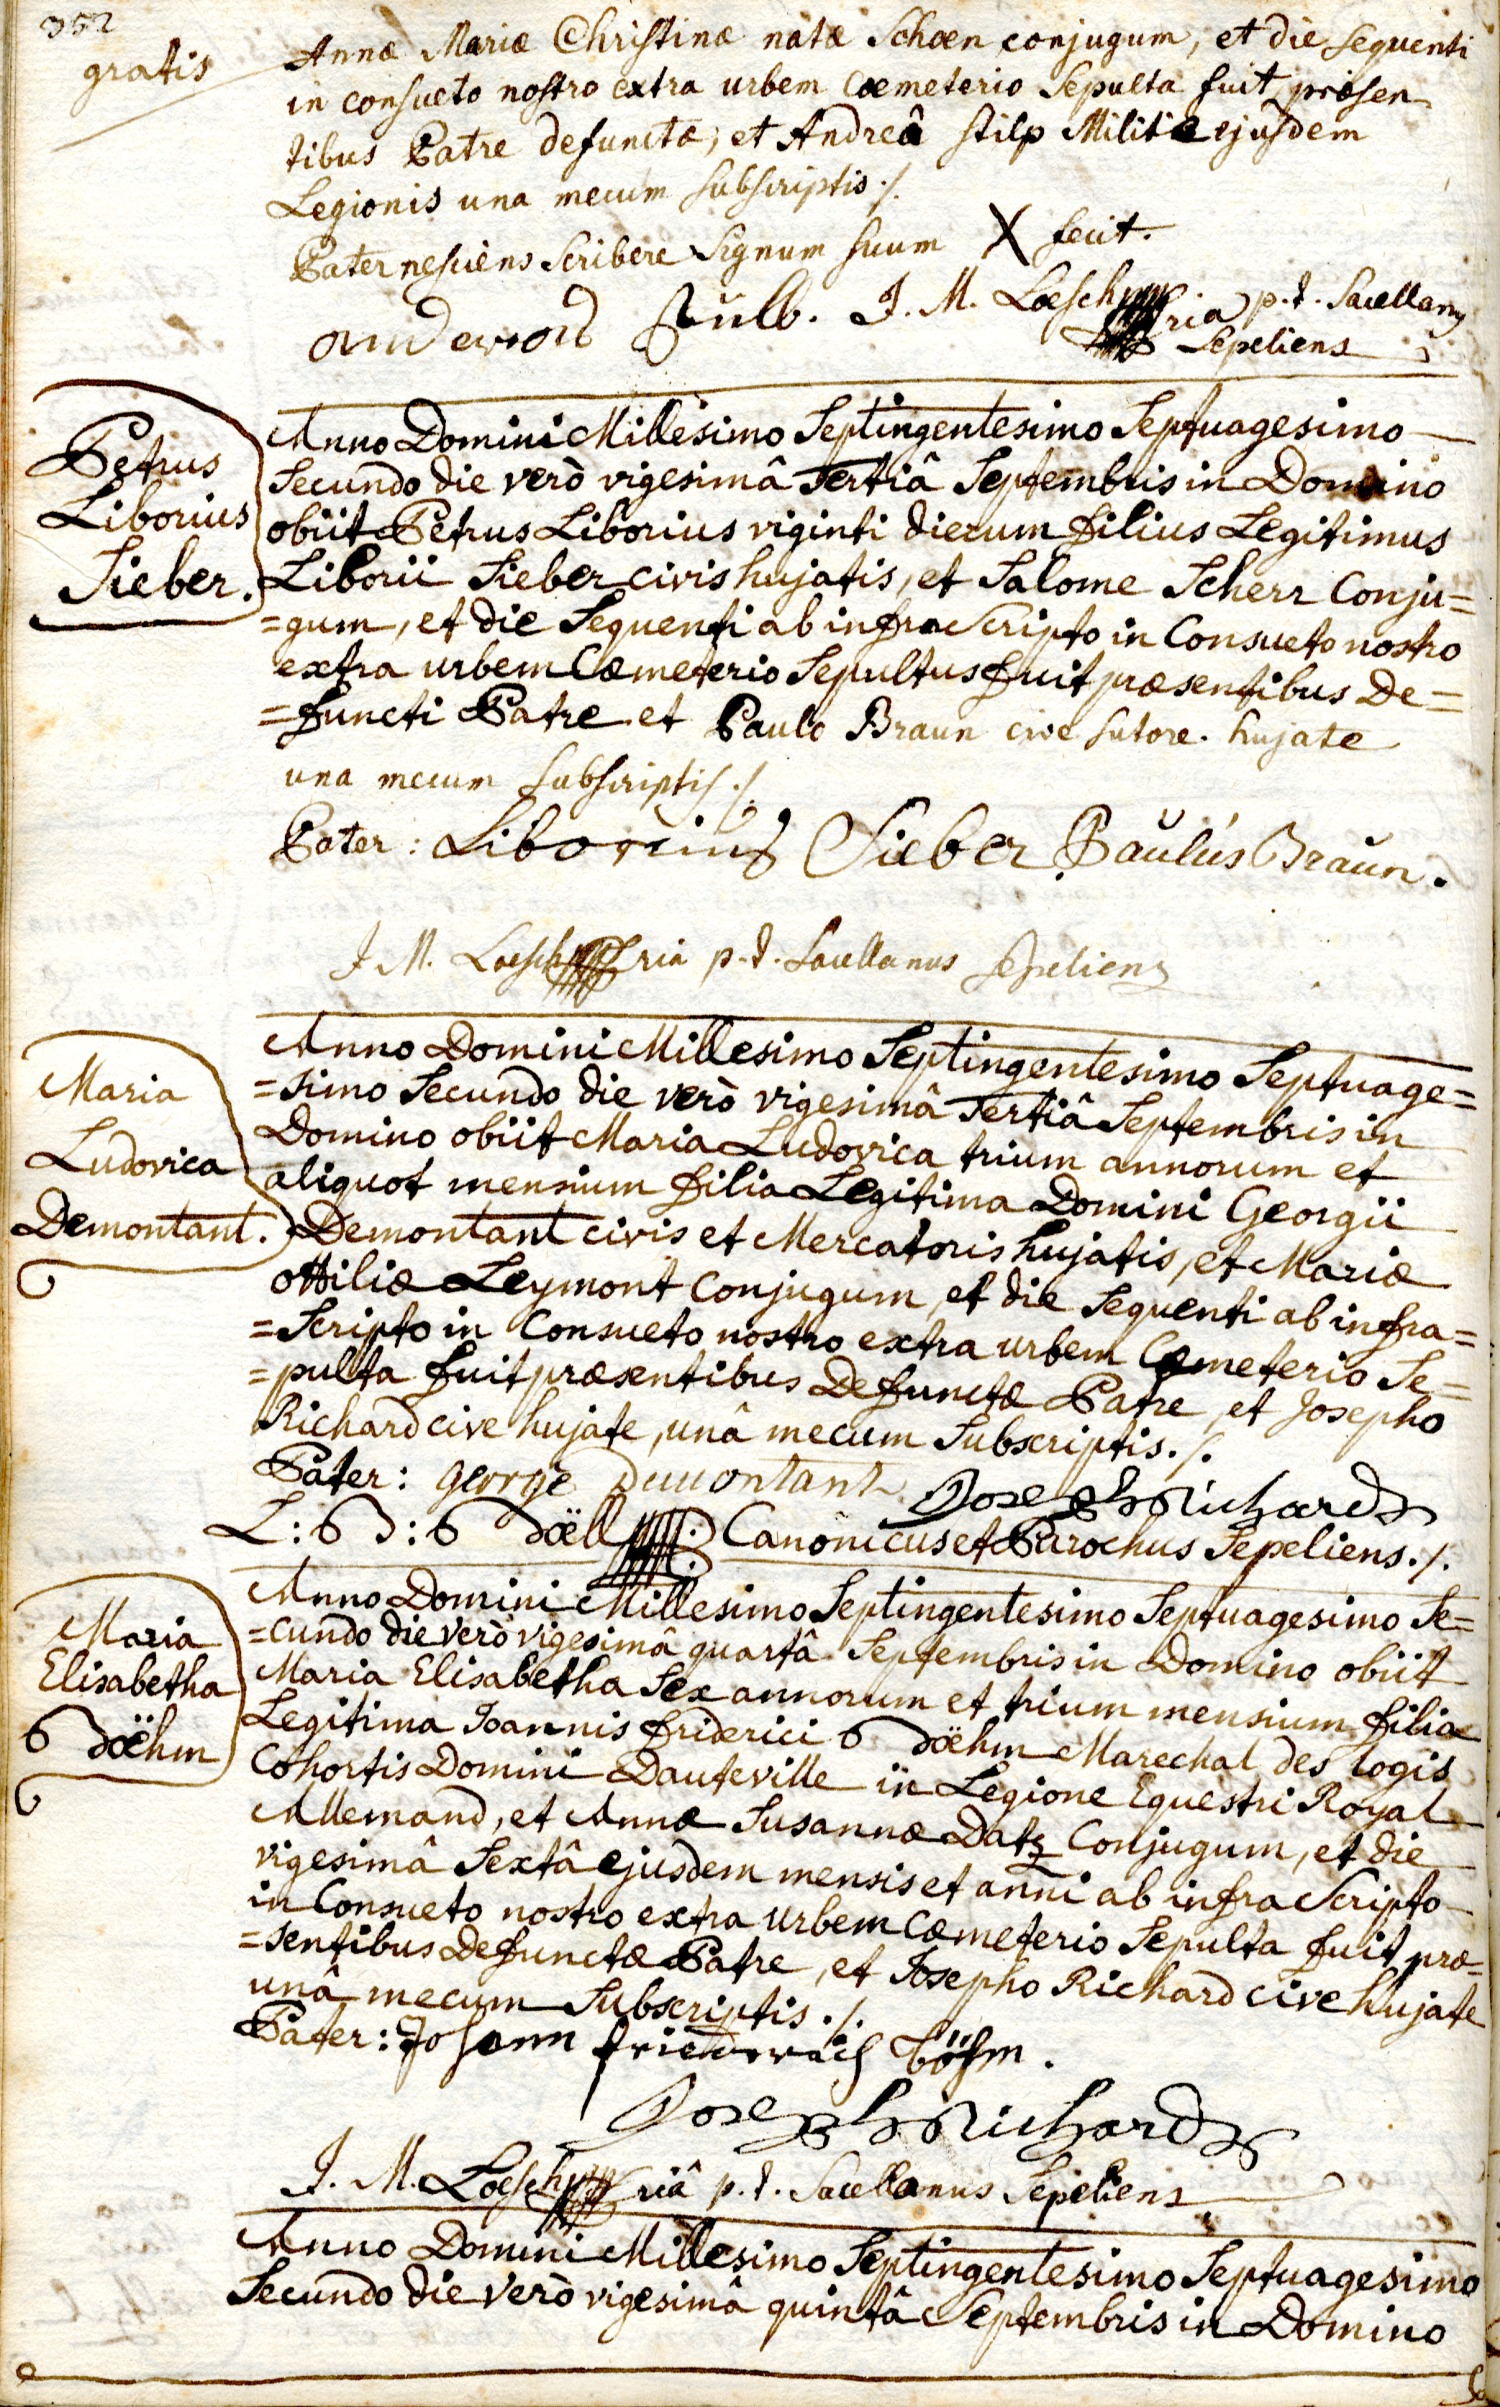 352
gratis
Annæ Mariæ Christinæ natæ Schoen conjugum, et die sequenti
in consueto nostro extra urbem cœmeterio sepulta fuit, præsen
tibus Patre defunctæ, et Andreâ Stilp Milite ejusdem
Legionis una mecum subscriptis ./.
Pater nesciens scribere signum suum X fecit.
J. M. Loesch
ria p. t. Sacellanus
Sepeliens
Petrus
Liborius
Sieber.
Anno Domini Millesimo Septingentesimo Septuagesimo
Secundo die verò vigesimâ Tertiâ Septembris in Domino
obiit Petrus Liborius viginti dierum filius Legitimus
Liborii Sieber civis hujatis, et Salome Scherr Conju=
=gum, et die Sequenti ab infra Scripto in Consueto nostro
extra urbem Cœmeterio Sepultus fuit præsentibus De=
=functi Patre et Paulo Braun cive sutore hujate
una mecum subscriptis ./.
Pater: Liborius Sieber Paulus Braun.
J. M. Loesch ria p. t. Sacellanus Sepeliens
Maria
Ludovica
Demontant.
Anno Domini Millesimo Septingentesimo Septuage=
=simo Secundo die verò vigesimâ Tertiâ Septembris in
Domino obiit Maria Ludovica trium annorum et
aliquot mensium filia Legitima Domini Georgii
Demontant civis et Mercatoris hujatis, et Mariæ
ottiliæ Leymont Conjugum, et die Sequenti ab infra=
=Scripto in Consueto nostro extra urbem Cœmeterio Se=
=pulta fuit præsentibus Defunctæ Patre, et Josepho
Richard cive hujate, unâ mecum Subscriptis ./.
Pater: george Demontant Joseph Richard
Canonicus et Parochus Sepeliens ./.
Maria
Elisabetha
Boëhm
Anno Domini Millesimo Septingentesimo Septuagesimo Se=
=cundo die verò vigesimâ quartâ Septembris in Domino obiit
Maria Elisabetha Sex annorum et trium mensium filia
Legitima Joannis friderici Boëhm Marechal des logis
Cohortis Domini Dauteville in Legione Equestri Royal
Allemand, et Annæ Susannæ Datz Conjugum, et die
vigesimâ Sextâ ejusdem mensis et anni ab infra Scripto
in Consueto nostro extra urbem Cœmeterio Sepulta fuit præ=
=sentibus Defunctæ Patre, et Josepho Richard cive hujate
unâ mecum Subscriptis ./.
Pater: Johann friederich böhm.
Joseph Richard
J. M. Loesch riâ p. t. Sacellanus Sepeliens
Anno Domini Millesimo Septingentesimo Septuagesimo
Secundo die verò vigesimâ quintâ Septembris in Domino